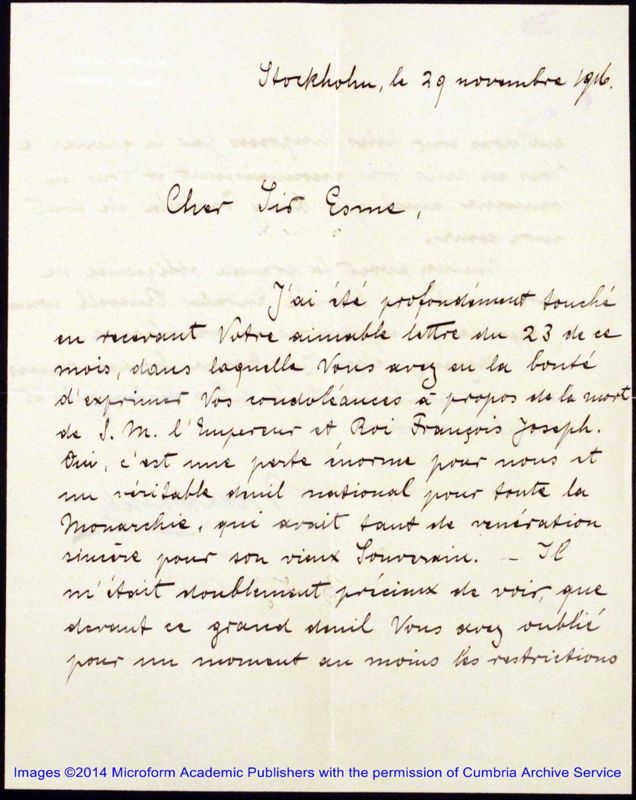 Stockholm, le 29 novembre 1916.
Cher Sir Esme,
J'ai été profondément touché
en recevant Votre aimable lettre du 23 de ce
mois, dans laquelle Vous avez eu la bonté
d'exprimer Vos condoléances à propos de la mort
de S. M. l'Empereur et Roi François Joseph.
Oui, c'est une perte énorme pour nous et
un véritable deuil national pour toute la
Monarchie, qui avait tant de vénération
sincère pour son vieux Souverain. — Il
m'était doublement précieux de voir, que
devant ce grand deuil Vous avez oublié
pour un moment au moins les restrictions
Images ©2014 Microform Academic Publishers with the permission of Cumbria Archive Service